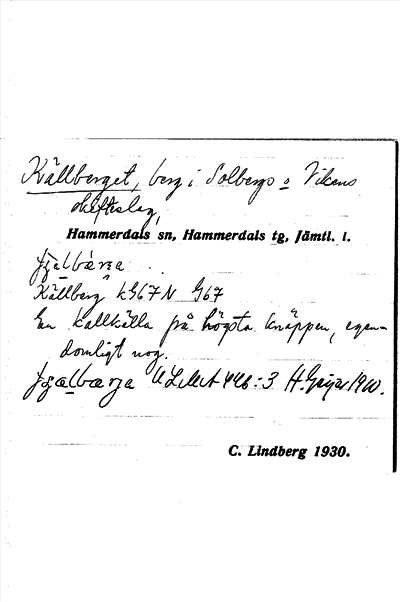 Källberget, berg i Solbergs o Vikens
skifteslag,
Hammerdals sn, Hammerdals tg, Jämtl. l.
Källberg kG67N G67
En kallkälla på högsta knäppen, egen-
domligt nog.
ULMA 446:3 H. Geijer 1900.
C. Lindberg 1930.